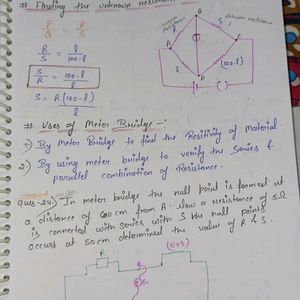 # Finding the unknown resistance
P/Q = R/S
R/S = l/100-l
S/R = 100-l/l
S = R(100-l)/l
unknown resistance
B
S
A
C
l
D
(100-l)
( )
# Uses of Meter Bridge -:
1) By Meter Bridge to find the Resitivity of Material.
2) By using meter bridge to verify the Series &
parallel combination of Resistance.
Ques-24) In meter bridge the null point is formed at
a distance of 60 cm from A. Now a resistance of 5Ω
is connected with series with S the null points
occurs at 50 cm determined the value of R & S.
R
B
(S+5)
G